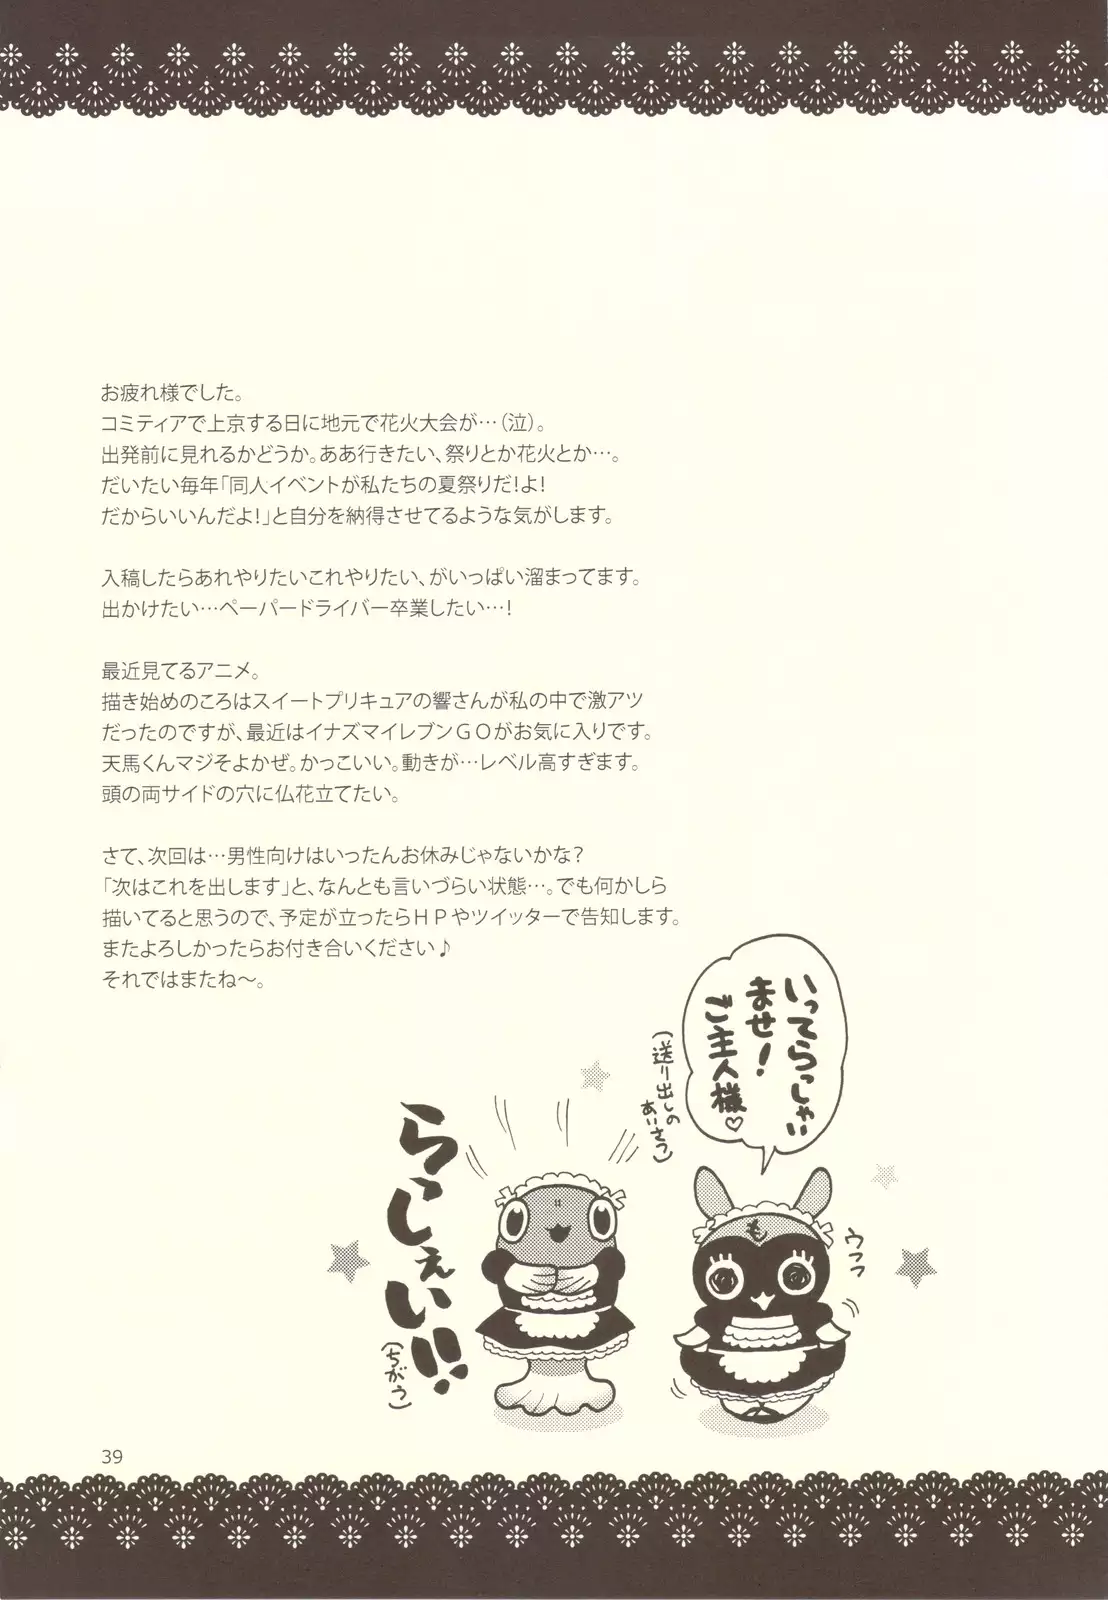 お疲れ様でした。
コミティアで上京する日に地元で花火大会が…(泣)。
出発前に見れるかどうか。ああ行きたい、祭りとか花火とか…。
だいたい毎年「同人イベントが私たちの夏祭りだ!よ!
だからいいんだよ!」と自分を納得させてるような気がします。
入稿したらあれやりたいこれやりたい、がいっぱい溜まってます。
出かけたい…ペーパードライバー卒業したい…!
最近見てるアニメ。
描き始めのころはスイートプリキュアの響さんが私の中で激アツ
だったのですが、最近はイナズマイレブンGOがお気に入りです。
天馬くんマジそよかぜ。かっこいい。動きが…レベル高すぎます。
頭の両サイドの穴に仏花立てたい。
さて、次回は…男性向けはいったんお休みじゃないかな?
「次はこれを出します」と、なんとも言いづらい状態…。でも何かしら
描いてると思うので、予定が立ったらHPやツイッターで告知します。
またよろしかったらお付き合いください♪
それではまたね〜。
いってらっしゃい
ませ!
ご主人様♡
(送り出しの
あいさつ)
らっしぇい!!
(ちがう)
も
ウフフ
39